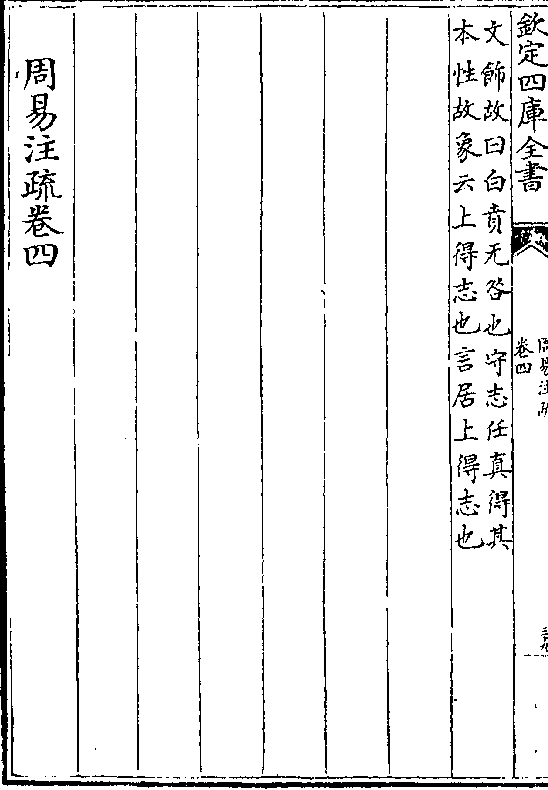 欽定四庫全書
周易注疏
卷四
文飾故曰白賁无咎也守志任真得其
本性故象云上得志也言居上得志也
周易注疏卷四